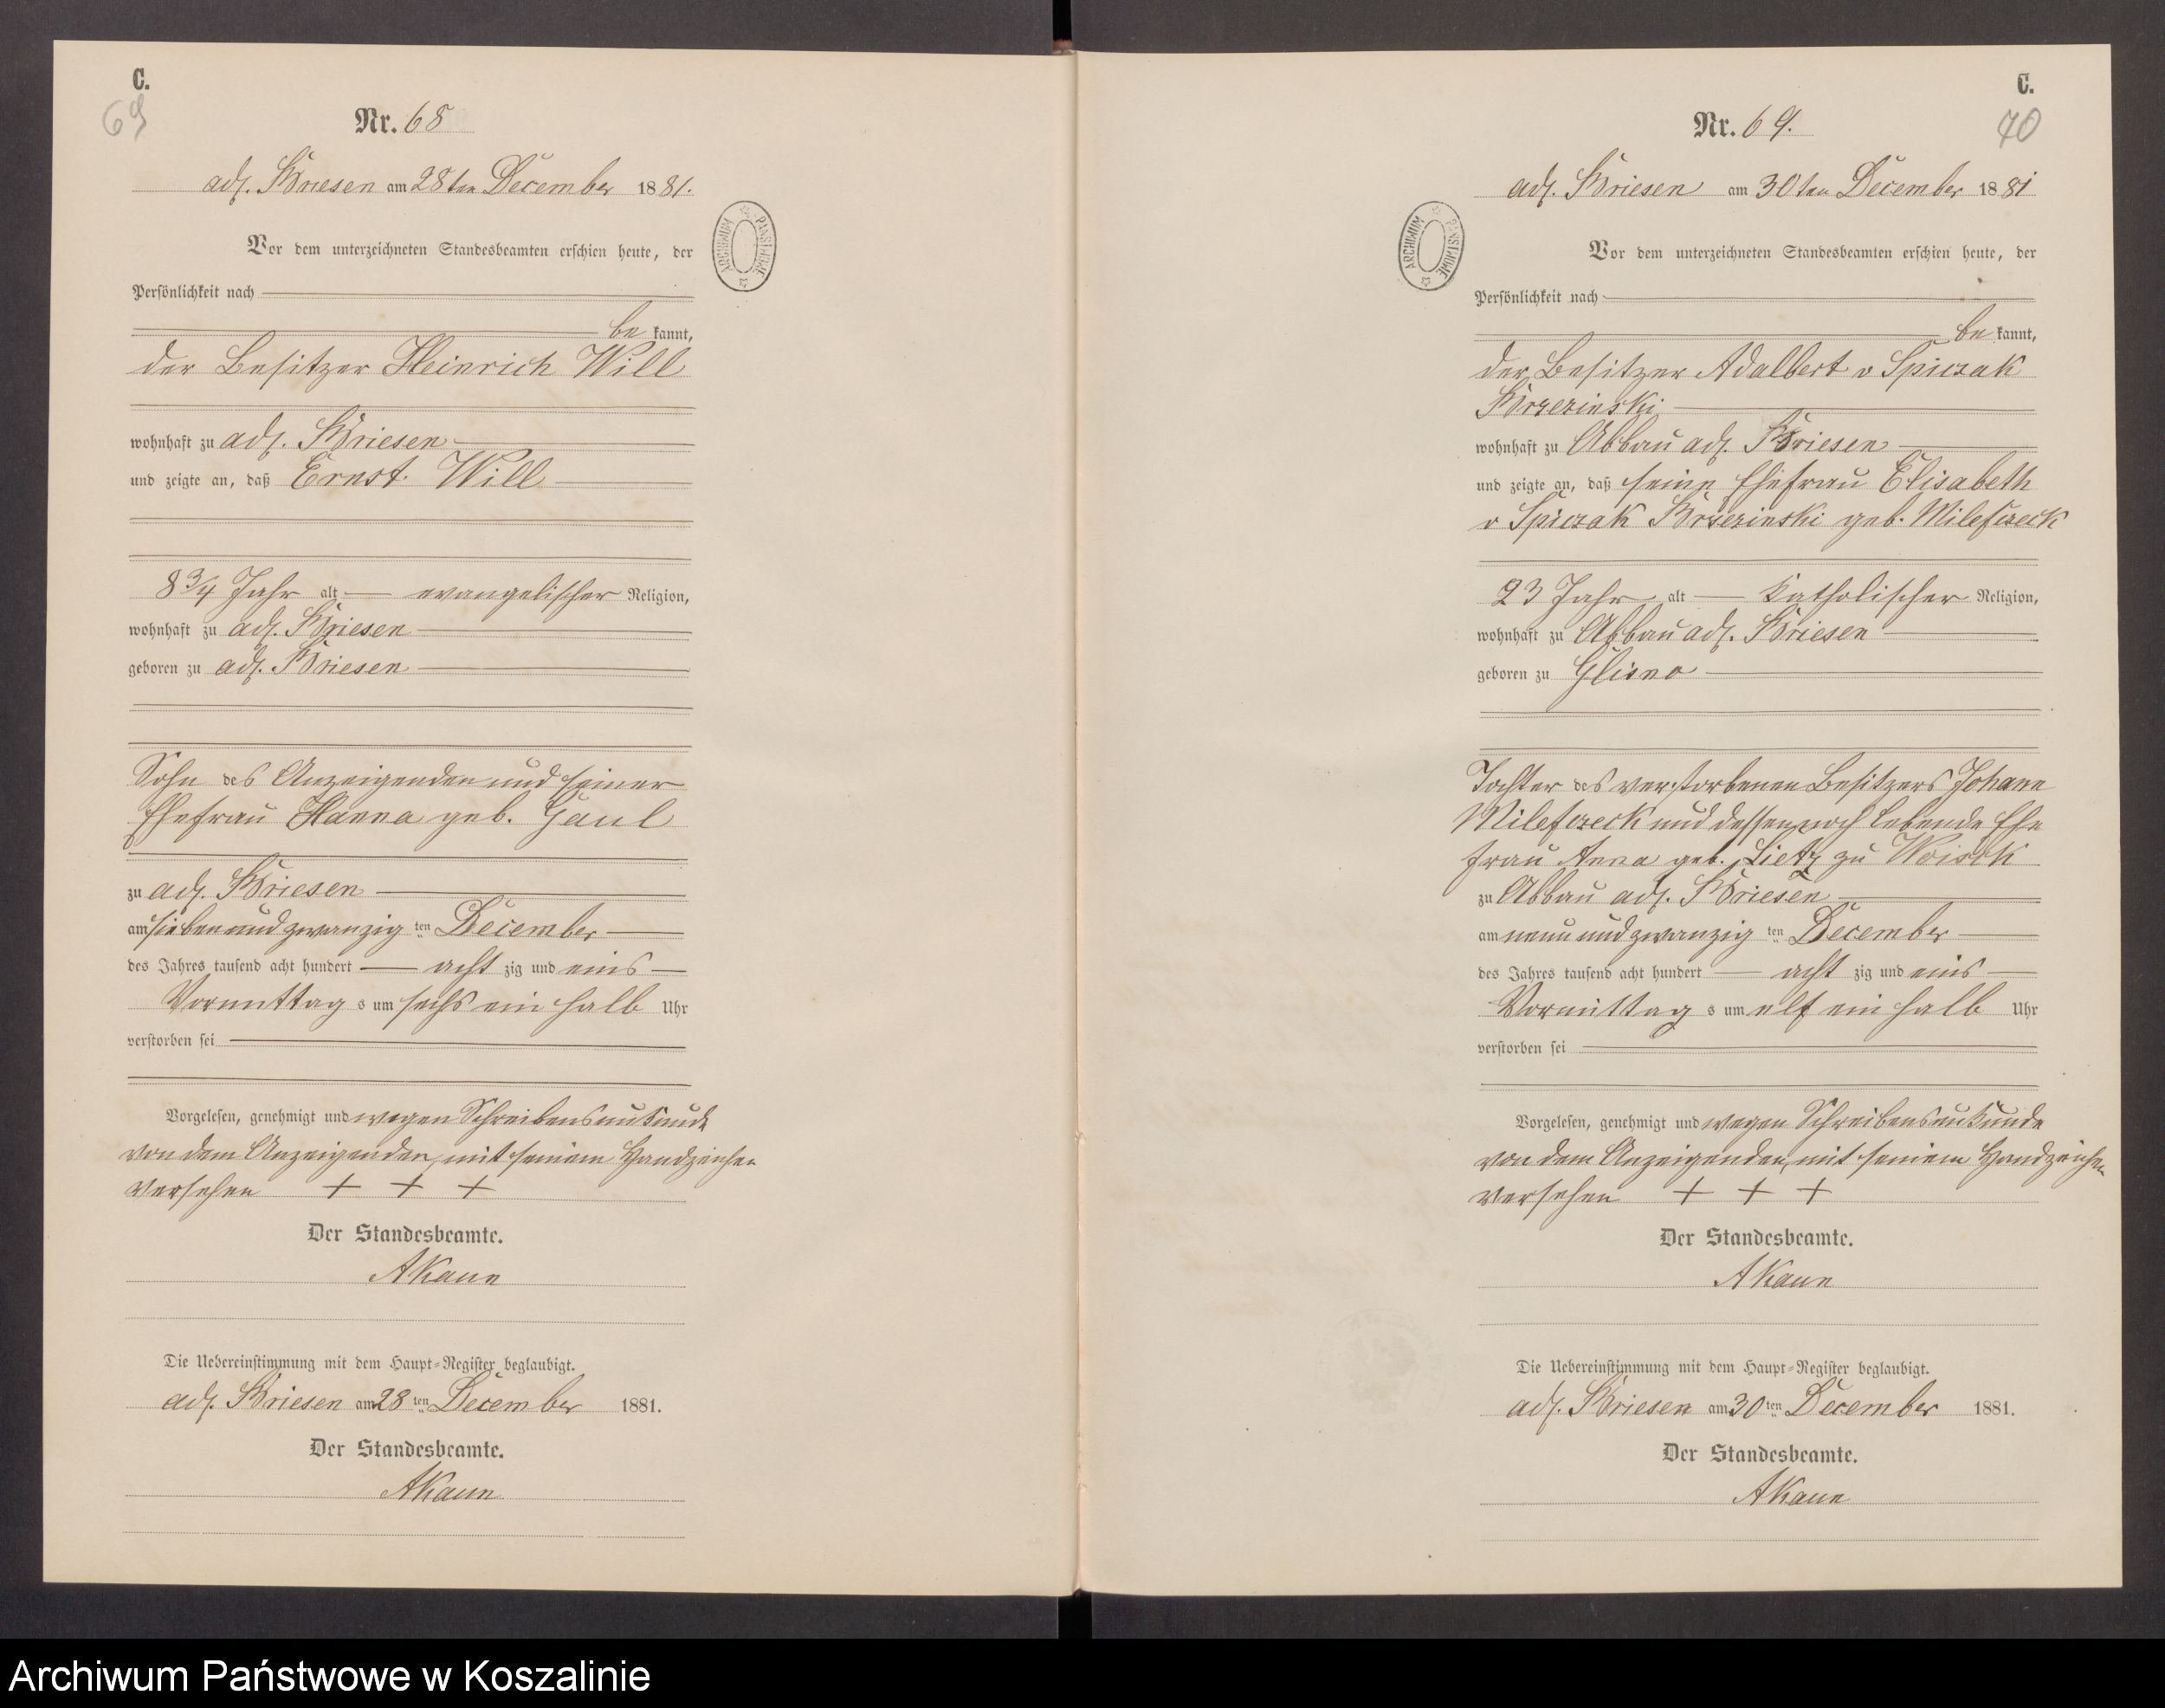 C.
69
Nr. 68
adl. Briesen am 28ten December 1881.
Vor dem unterzeichneten Standesbeamten erschien heute, der
Persönlichkeit nach
be kannt,
der Besitzer Heinrich Will
wohnhaft zu adl. Briesen
und zeigte an, daß Ernst Will
8 3/4 Jahr alt evangelischer Religion,
wohnhaft zu adl. Briesen
geboren zu adl. Briesen
Sohn des Anzeigenden und seiner
Ehefrau Hanna geb. Gaul
zu adl. Briesen
am sieben und zwanzig ten December
des Jahres tausend acht hundert acht zig und eins
Vormittag s um sechs ein halb Uhr
verstorben sei
Vorgelesen, genehmigt und wegen Schreibensunkunde
von dem Anzeigenden, mit seinem Handzeichen
versehen + + +
Der Standesbeamte.
AKaun
Die Uebereinstimmung mit dem Haupt-Register beglaubigt.
adl. Briesen am 28 ten December 1881.
Der Standesbeamte.
AKaun
C.
70
Nr. 69.
adl. Briesen am 30ten December 1881
Vor dem unterzeichneten Standesbeamten erschien heute, der
Persönlichkeit nach
be kannt,
der Besitzer Adalbert v Spiczak
Brzezinski
wohnhaft zu Abbau adl. Briesen
und zeigte an, daß seine Ehefrau Elisabeth
v Spiczak Brzezinski geb. Milefczeck
23 Jahr alt Katholischer Religion,
wohnhaft zu Abbau adl. Briesen
geboren zu Glisno
Tochter des verstorbenen Besitzers Johann
Milefczeck und dessen noch lebende Ehe
frau Anna geb. Lietz zu
zu Abbau adl. Briesen
am neun und zwanzig ten December
des Jahres tausend acht hundert acht zig und eins
Vormittag s um elf ein halb Uhr
verstorben sei
Vorgelesen, genehmigt und wegen Schreibensunkunde
von dem Anzeigenden, mit seinem Handzeichen
versehen + + +
Der Standesbeamte.
AKaun
Die Uebereinstimmung mit dem Haupt-Register beglaubigt.
adl. Briesen am 30 ten December 1881.
Der Standesbeamte.
AKaun
ARCHIWUM PAŃSTWOWE
ARCHIWUM PAŃSTWOWE
Archiwum Państwowe w Koszalinie